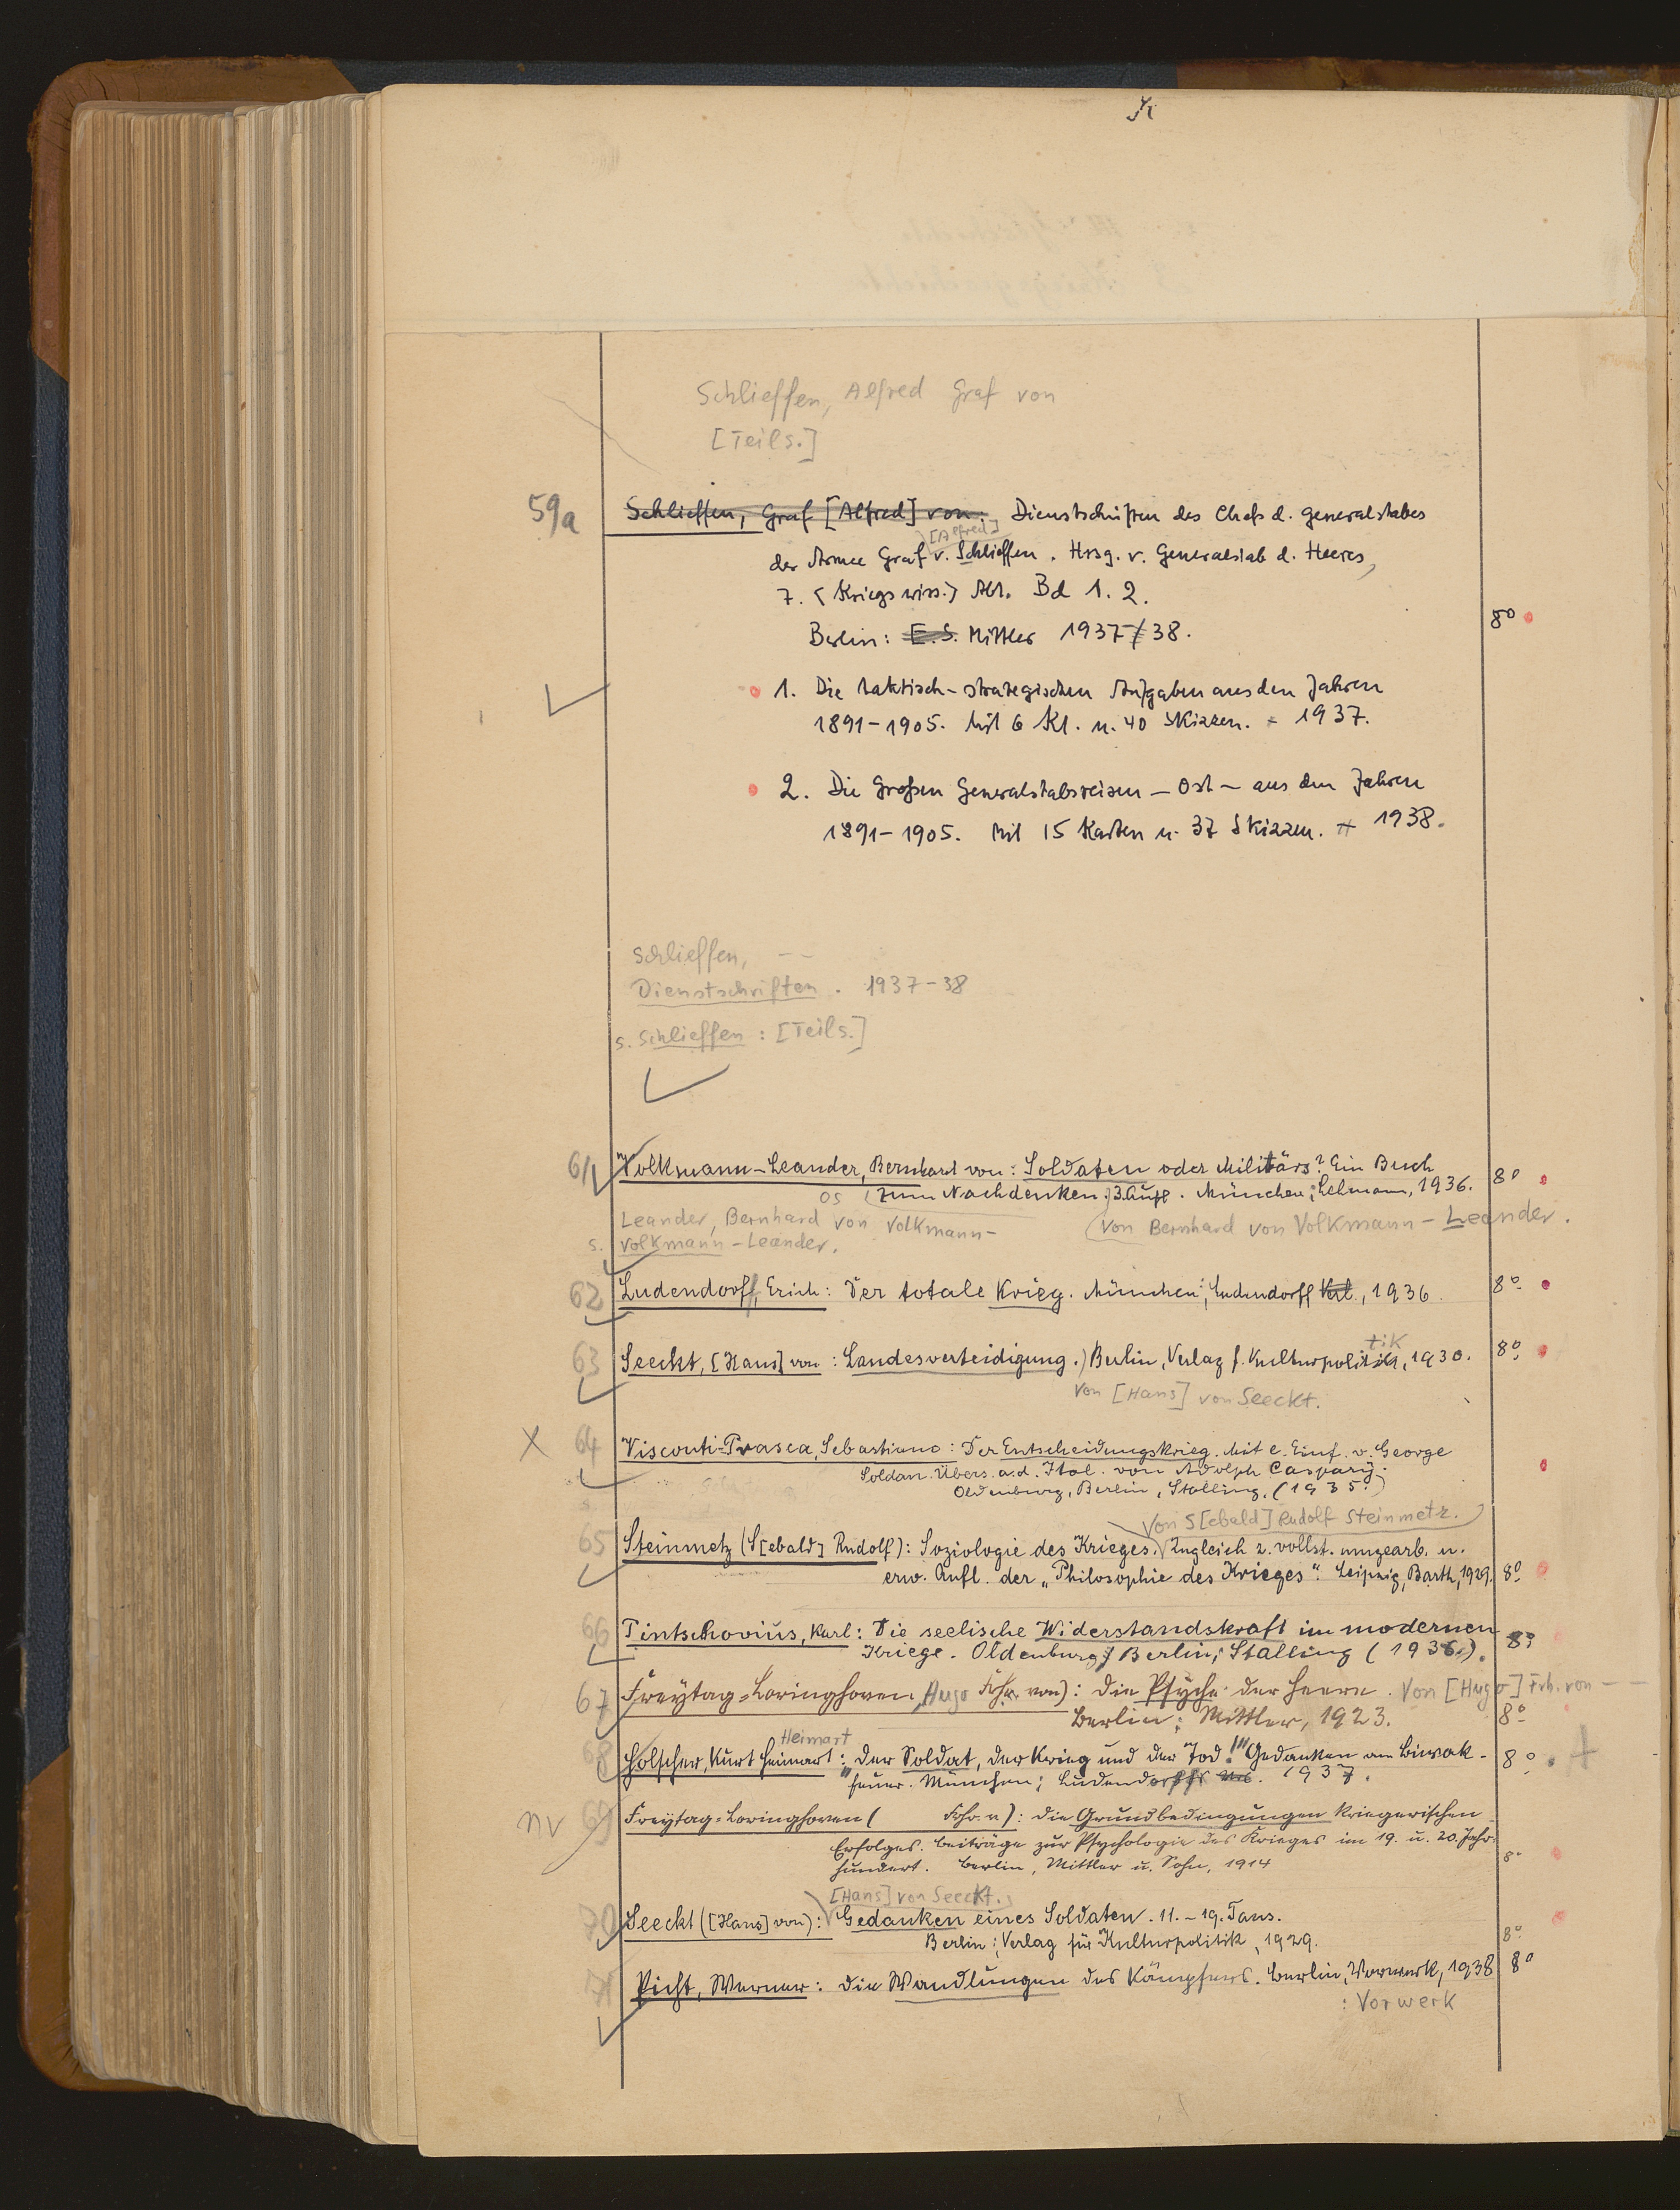 Schlieffen, Alfred Graf von
[Teils.]
59a Schlieffen, Graf [Alfred] von: Dienstschriften des Chefs d. Generalstabes
[Alfred]
der Armee Graf v. Schlieffen. Hrsg. v. Generalstab d. Heeres,
7. (Kriegswiss.) Abt. Bd 1. 2.
Berlin: E. S. Mittler 1937/38. 8°
1. Die taktisch-strategischen Aufgaben aus den Jahren
1891-1905. Mit 6 Kt. u. 40 Skizzen. - 1937.
2. Die Großen Generalstabsreisen - Ost - aus den Jahren
1891-1905. Mit 15 Karten u. 37 Skizzen. 1938.
Schlieffen, --
Dienstschriften. 1937-38
s. Schlieffen: [Teils.]
61 Volkmann-Leander, Bernhard von: Soldaten oder Militärs? Ein Buch
zum Nachdenken. 3. Aufl. München: Lehmann, 1936. 8°
OS
Leander, Bernhard von Volkmann-
von Bernhard von Volkmann-Leander.
s. Volkmann-Leander.
62 Ludendorff, Erich: Der totale Krieg. München: Ludendorff Verl., 1936. 8°
tik
63 Seeckt, [Hans] von: Landesverteidigung. Berlin, Verlag f. Kulturpolitik, 1930. 8°
von [Hans] von Seeckt.
X 64 Visconti-Prasca, Sebastiano: Der Entscheidungskrieg. Mit e. Einf. v. George
Soldan. Übers. a. d. Ital. von Adolph Caspary.
Oldenburg, Berlin, Stalling, (1935.)
von S[ebald] Rudolf Steinmetz.
65 Steinmetz (S[ebald] Rudolf): Soziologie des Krieges. Zugleich 2. vollst. umgearb. u.
erw. Aufl. der „Philosophie des Krieges". Leipzig, Barth, 1929. 8°
66 Tintschovius, Karl: Die seelische Widerstandskraft im modernen
Kriege. Oldenburg, Berlin; Stalling (1936). 8°
67 Freytag=Loringhoven, Hugo Frh. von): Die Psyche der Heere. Von [Hugo] Frh. von --
Berlin: Mittler, 1923. 8°
Heimart
68 Holscher, Kurt Heimart: „Der Soldat, der Krieg und der Tod!" Gedanken am Biwak- 8°
feuer. München; Ludendorffs Verl. 1937.
nv 69 Freytag=Loringhoven ( Frhr. v): Die Grundbedingungen kriegerischen
Erfolges. Beiträge zur Psychologie des Krieges im 19. u. 20. Jahr-
hundert. Berlin, Mittler u. Sohn, 1914 8°
[Hans] von Seeckt.
70 Seeckt ([Hans] von): Gedanken eines Soldaten. 11.-19. Taus.
Berlin: Verlag für Kulturpolitik, 1929. 8°
71 Picht, Werner: Die Wandlungen des Kämpfers. Berlin, Vorwerk, 1938 8°
: Vorwerk